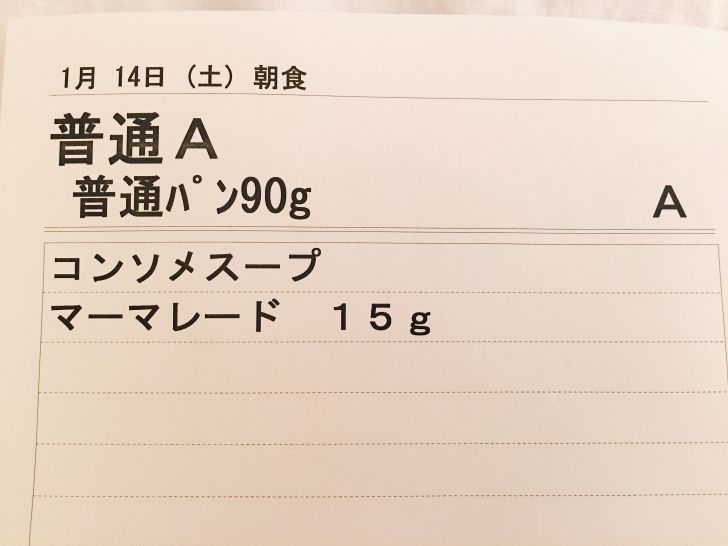 1月 14日 (土) 朝食
普通A
普通ﾊﾟﾝ90g A
コンソメスープ
マーマレード　１５ｇ